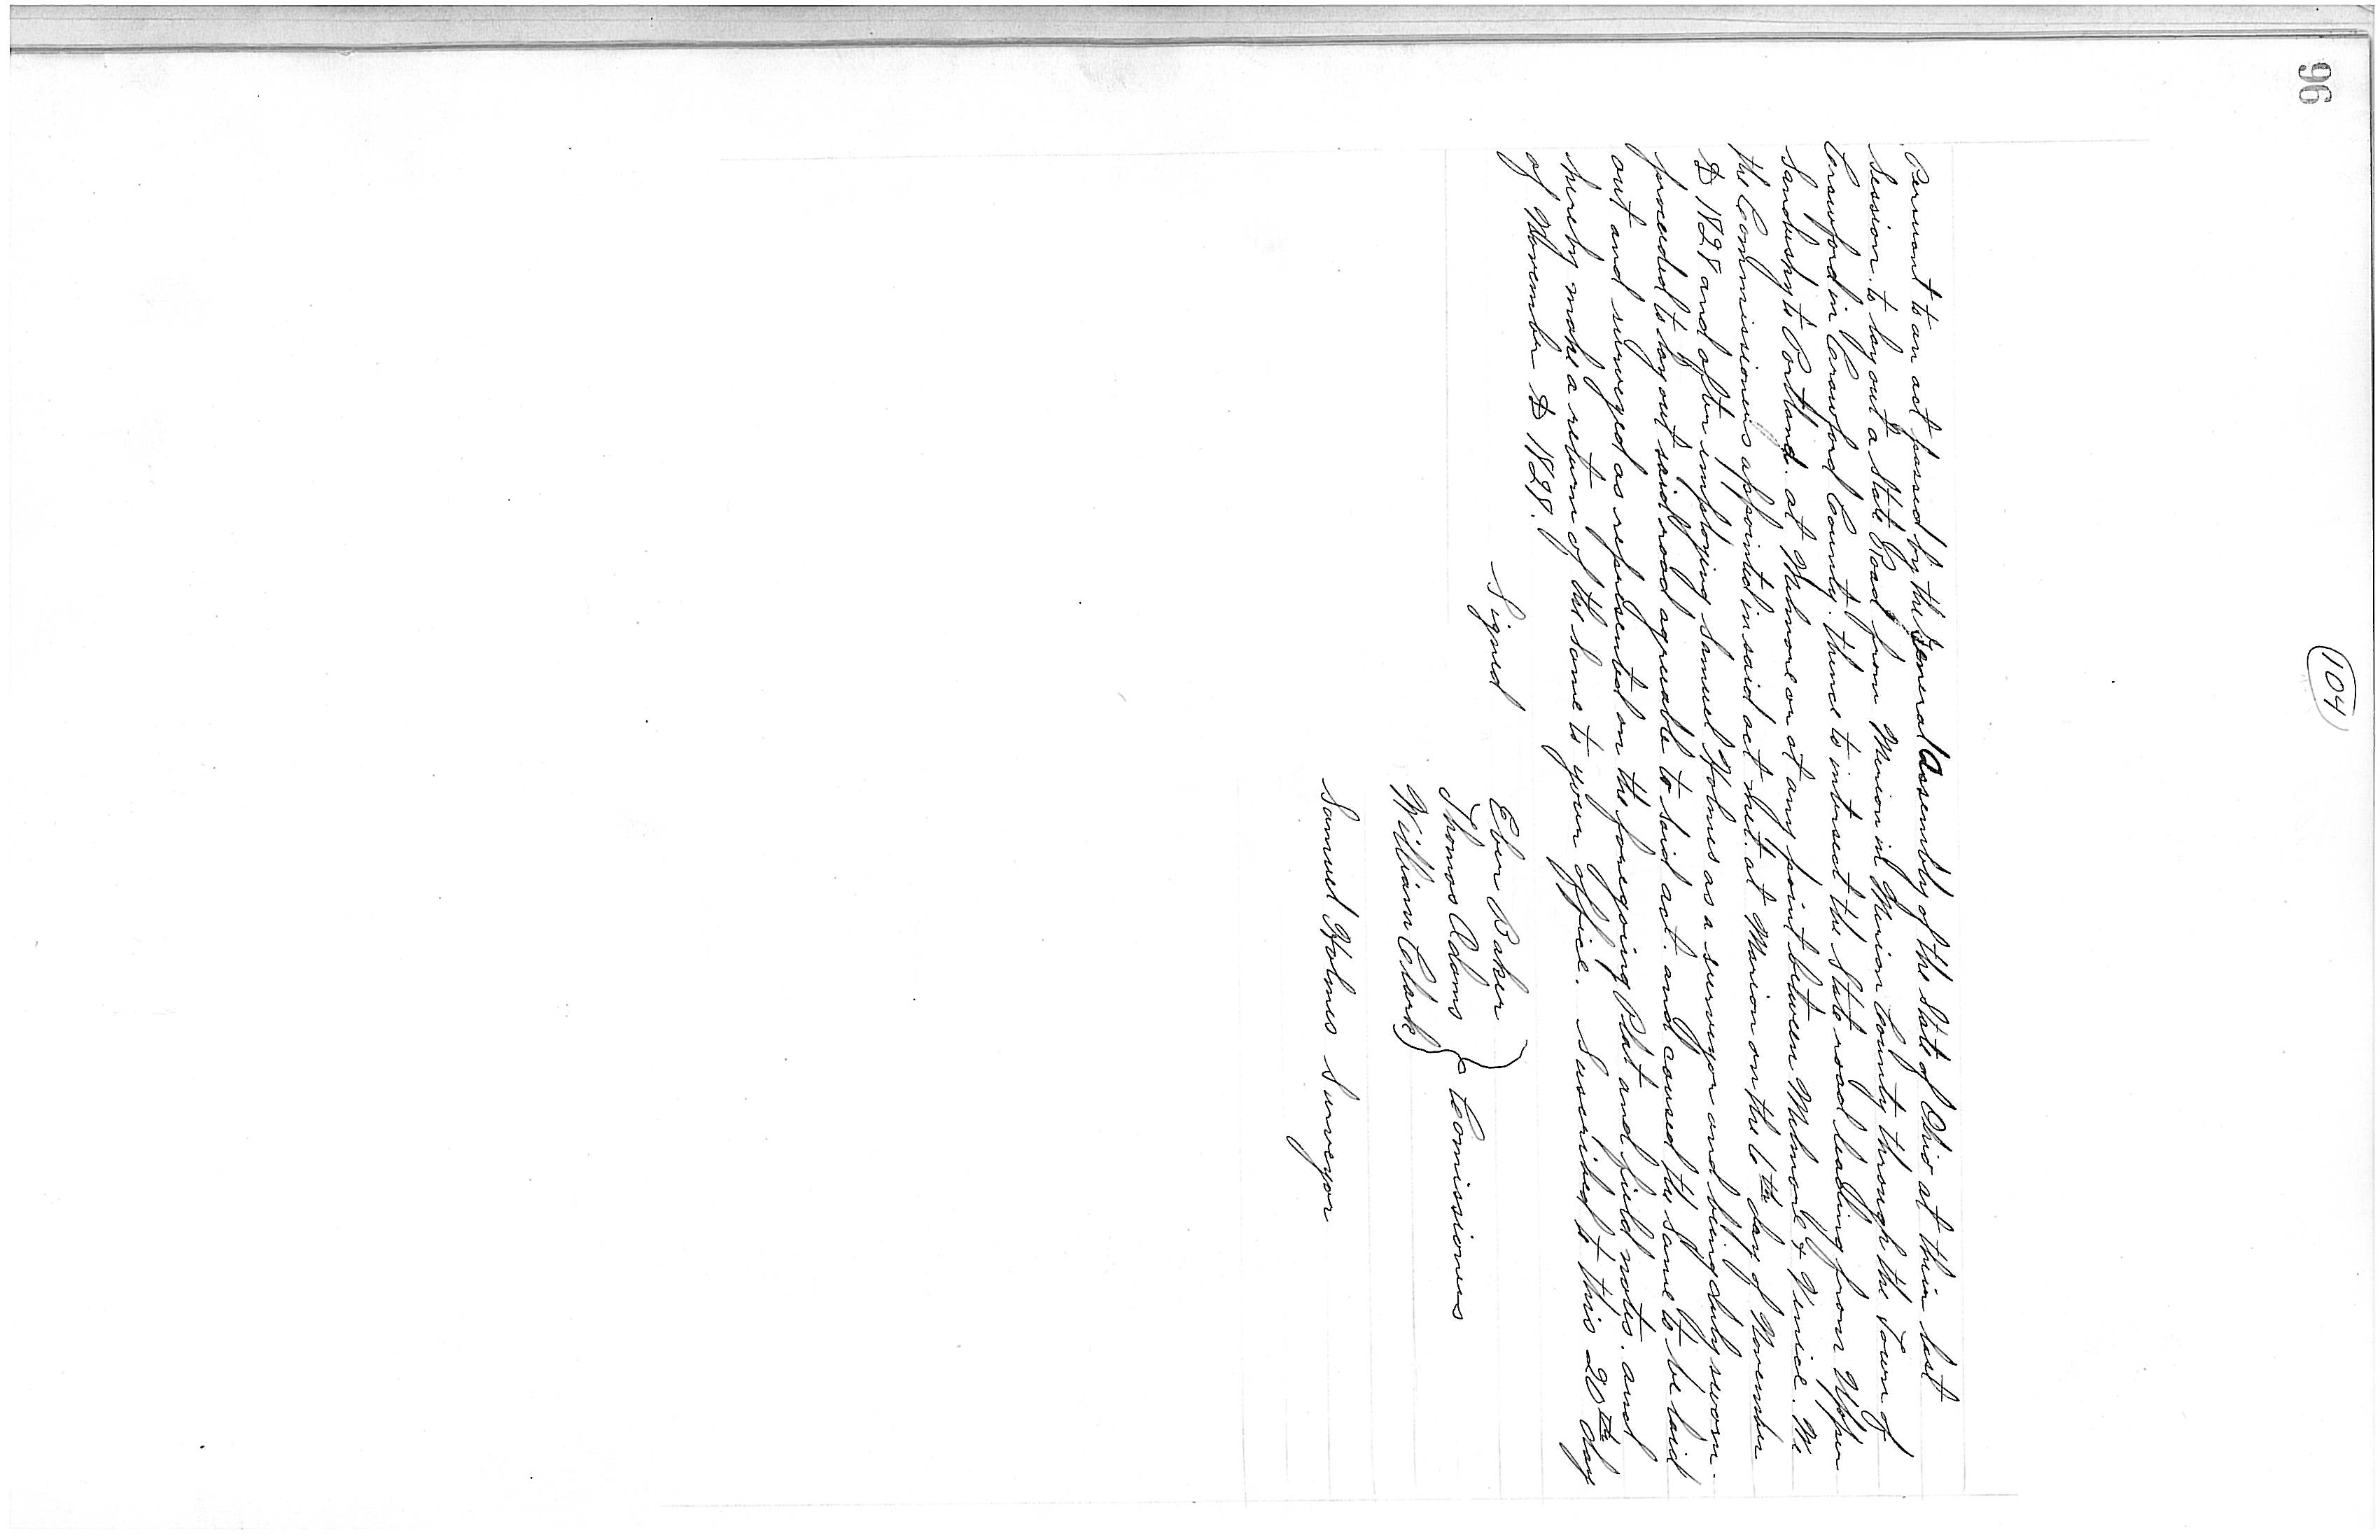 96
104
Persuant to an act passed by the General Assembly of the State of Ohio at their last
Session. to lay out a State Road from Marion in Marion County through the Town of
Crawford in Crawford County. thence to intersect the State road leading from Upper
Sandusky to Portland. at Melmore or at any point between Melmore & Venice. We
the Commissioners appointed in said act met. at Marion on the 6th day of November
1828 and after imploying Samuel Holmes as a surveyor and being duly sworn.
proceeded to lay out said road agreeable to said act. and caused the same to be laid
out and surveyed as represented on the foregoing Plat and field notes. and
hereby make a return of the same to your office. Suscribed to this 20th day
of November 1828.
Signed
Eber Baker
Thomas Adams } Commissioners
William Clark
Samuel Holmes Surveyor